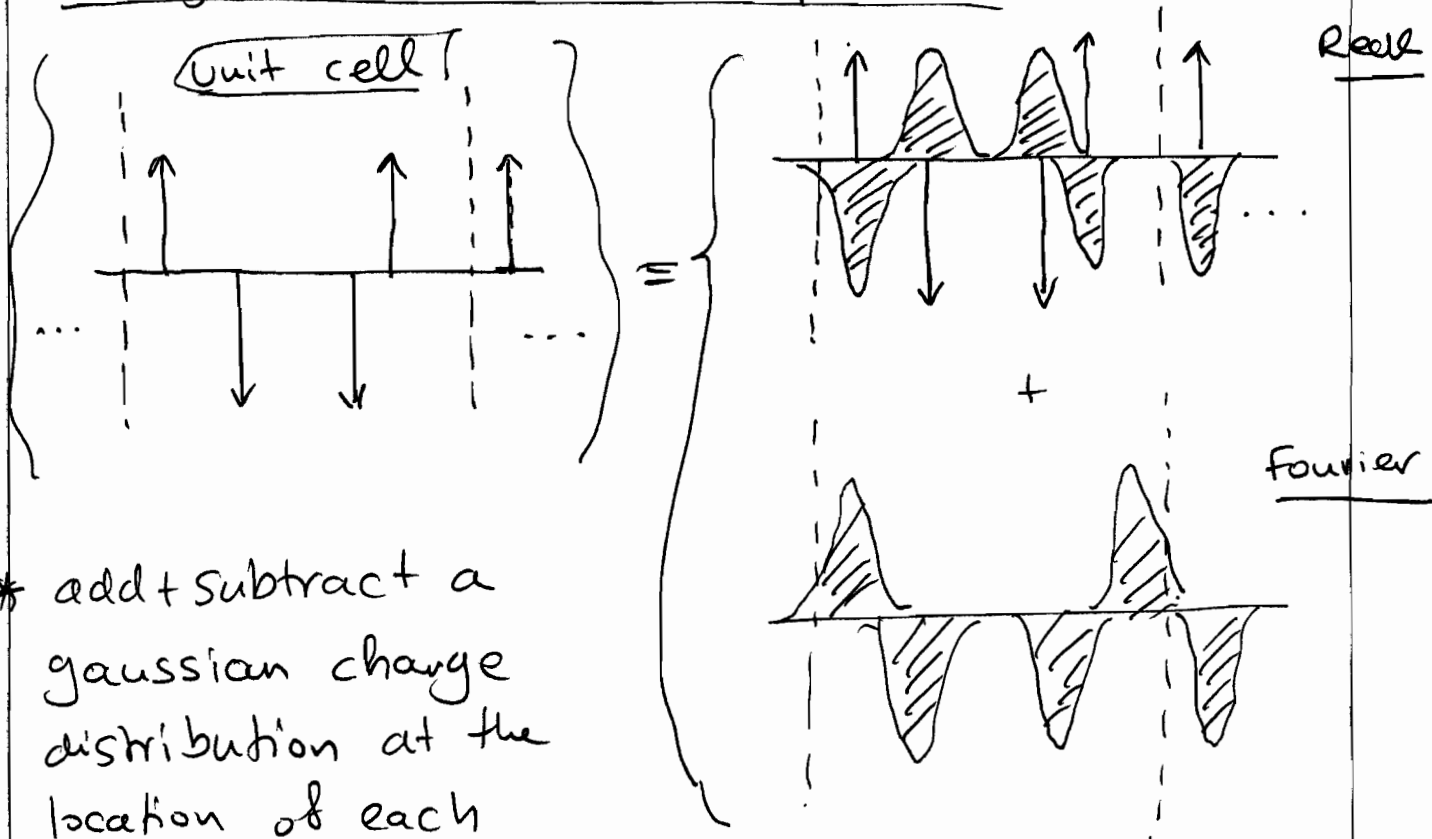 unit cell
Real
...
...
=
...
+
Fourier
* add + subtract a
gaussian charge
distribution at the
location of each